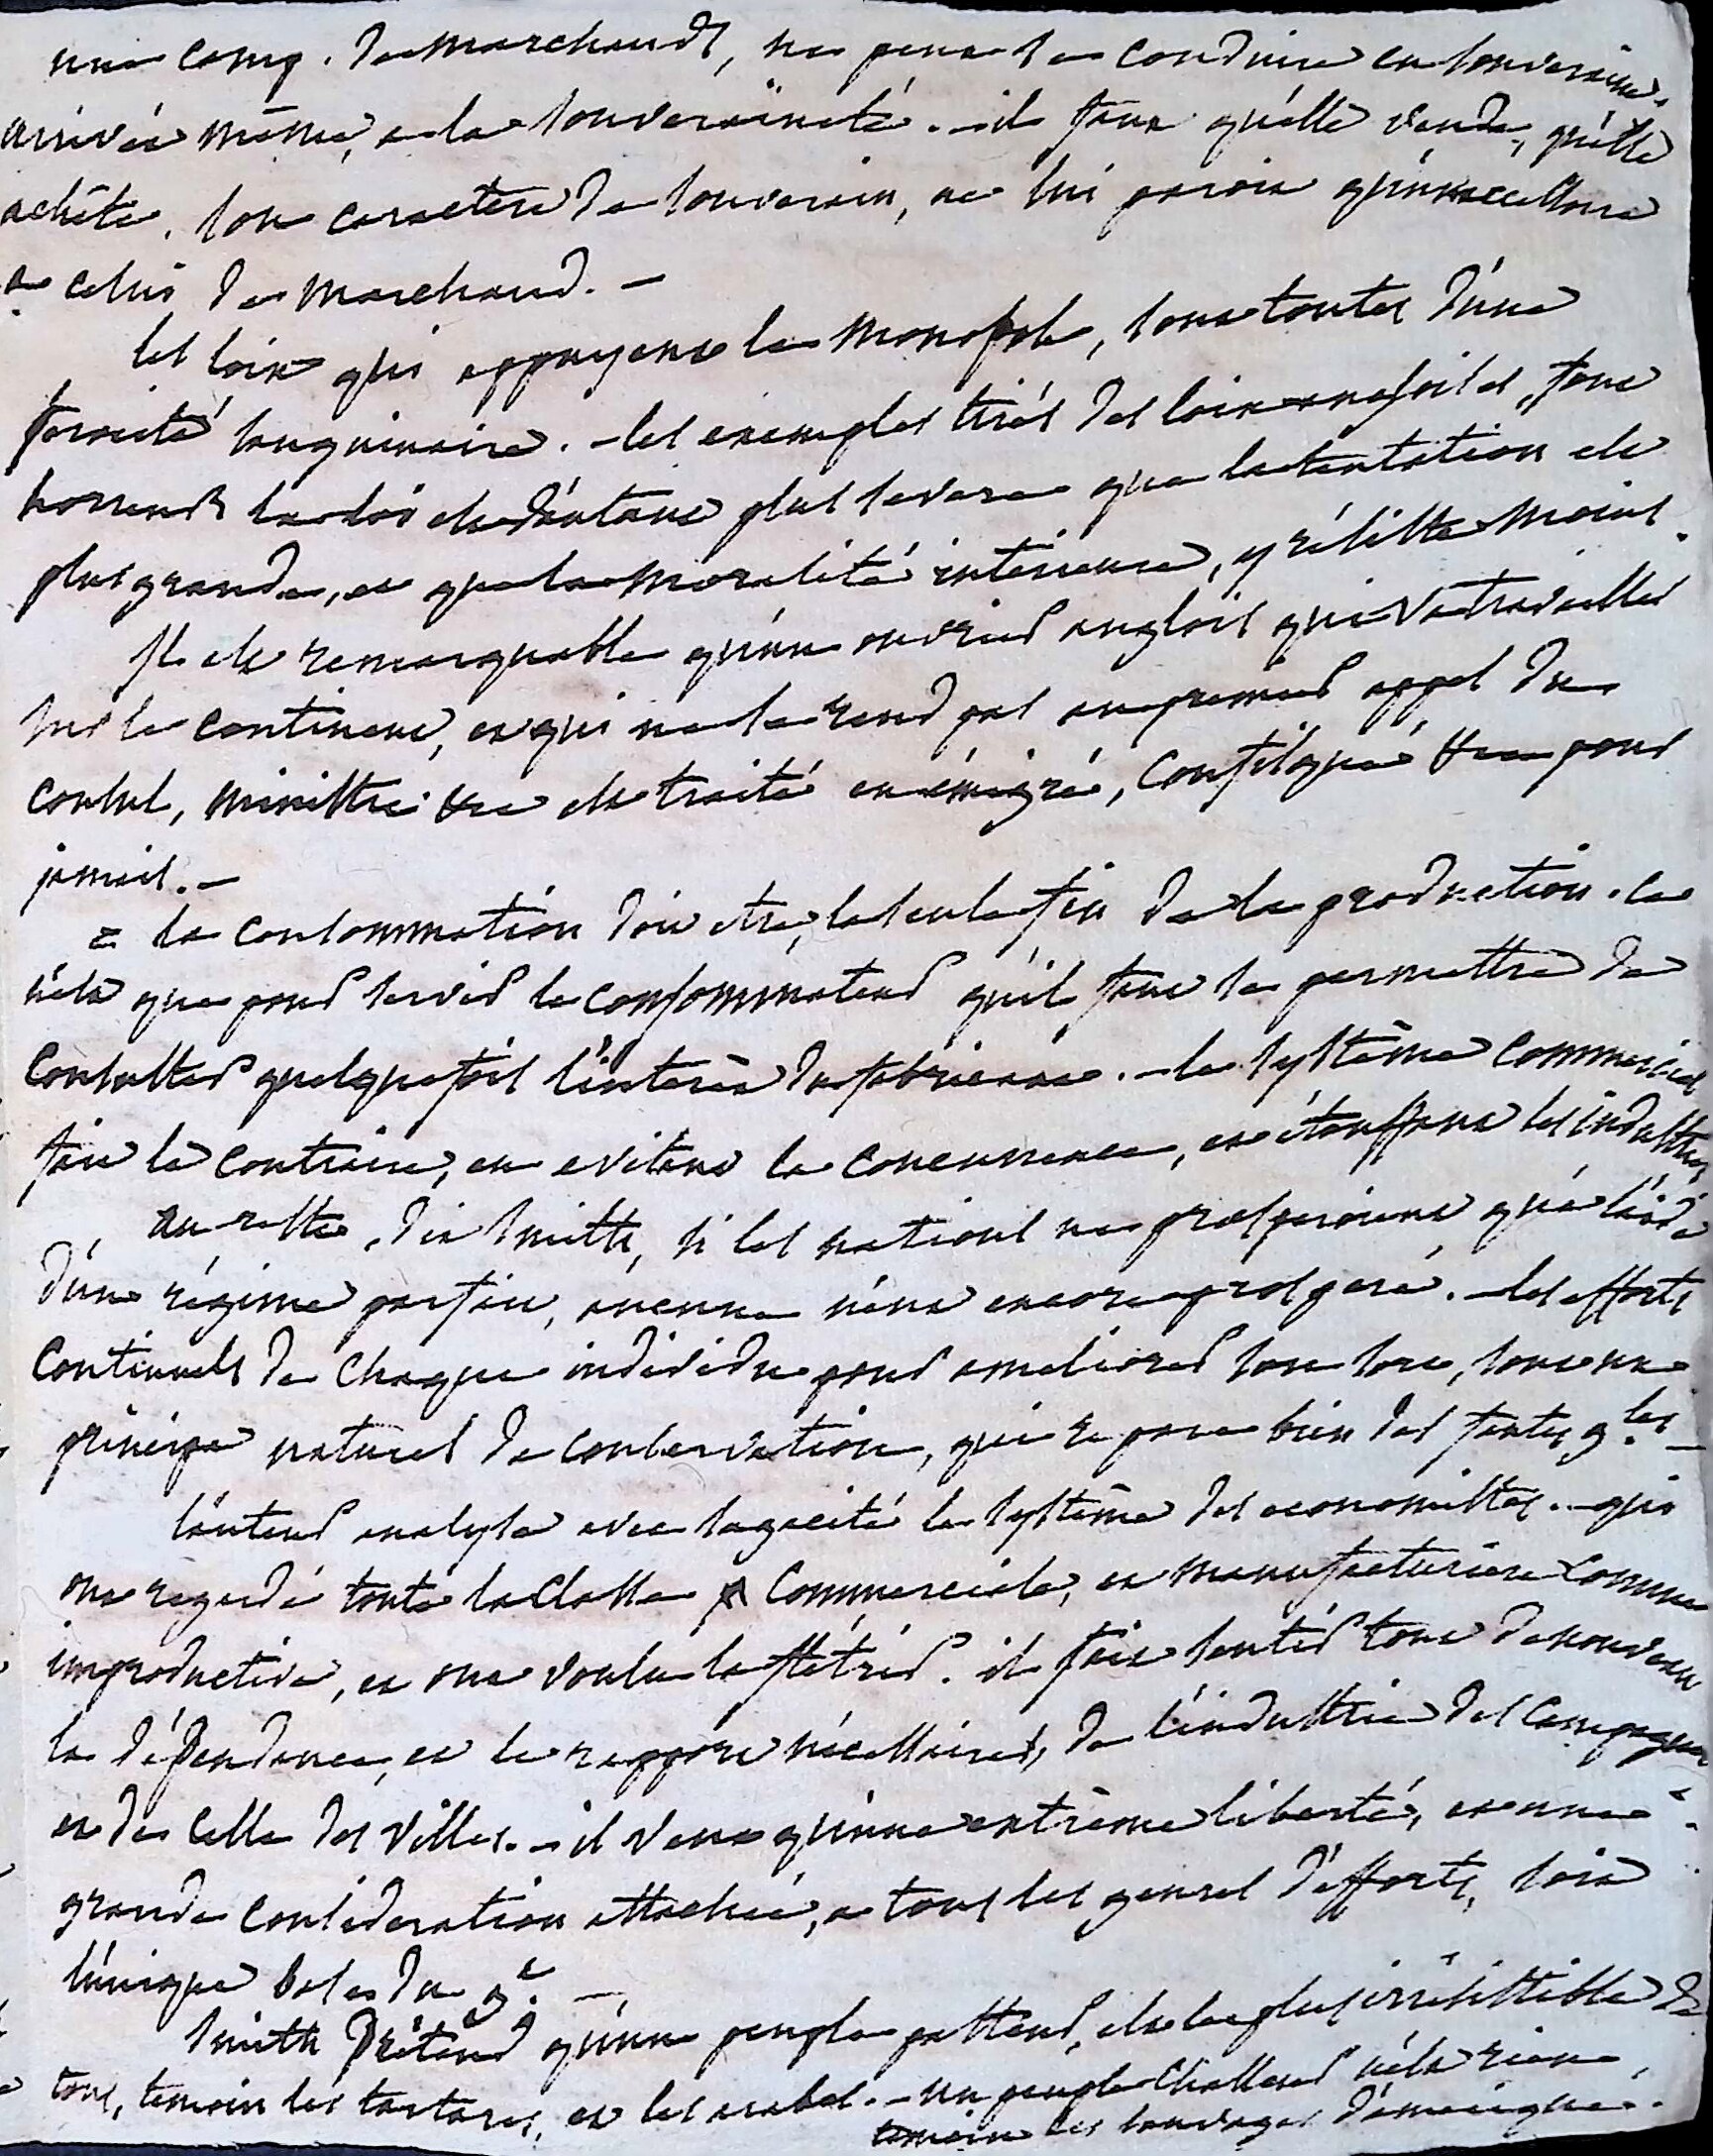 une comp. de marchands, ne peut se conduire en souveraine,
arrivée même, a la souveraineté. - il faut qu'elle vende, qu'elle
achête. son caractere de souverain, ne lui parois qu'un accessoire
a celui de marchand. -
les loix qui appuyent le monopole, sont toutes d'une
ferocité sanguinaire. - les exemples tirés des loix font
horreur. la loi est d'autant plus severe que la tentation est
plus grande, et que la moralité intérieure, y résiste moins.
Il est remarquable qu'un ouvrier anglois qui va travailler
sur le continent, et qui ne se rend pas au premier appel du
consul, ministre &c est traité en émigré, confisqué &c pour
jamais. -
= la consommation doit etre, la seule fin de la production. ce
n'est que pour servir le consommateur qu'il faut se permettre de
consulter quelquefois l'intérêt du fabricant. - le système commercial
fait le contraire, en evitant la concurrence, en étouffant les industries
au reste, dit Smith, si les nations ne prosperoient qu'a l'aide
d'un régime parfait, aucune n'eut encore prosperé. - les efforts
continuels de chaque individu pour ameliorer son sort, sont un
principe naturel de conservation, qui repare bien des fautes g.les -
l'auteur analyse avec sagacité le système des economistes. - qui
ont regardé toute la classe commerciale, et manufacturiere comme
improductive, et ont voulu la flétrir. il fait sentir tout de nouveau
la dépendance, et le rapport nécessaires, de l'industrie des campagnes
et de celle des villes. - il veut qu'une extrème liberté, et une
grande consideration attachée, a tous les genres d'efforts, soit
l'unique base du g.t -
Smith prétend qu'un peuple pasteur, est le plus irrésistible de
tous, temoin les tartares, et les arabes. - un peuple chasseur n'est rien,
temoin les sauvages d'amerique.